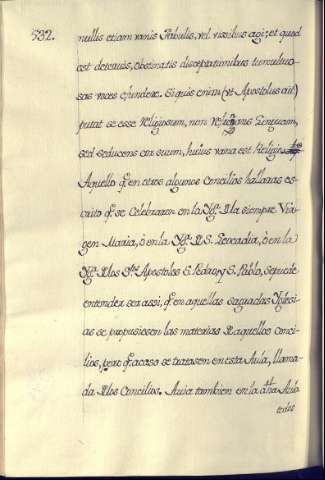 532. nullis etiam vanis Fabulis, vel risibus agi; et quod
est deterius, obstinatis disceptationibus tumultuo-
sas voces effundere. Siquis enim (vt Apostolus ait)
putat se esse Religiosum, non refrenans Linguam,
sed seducens cor suum, huius vana est Religio.
Aquello q̃ en otros algunos Concilios hallaras es-
crito q̃ se celebraron en la Ygª. D la siempre Vir-
gen Maria, ò en la Ygª. D S. Leocadia, ò en la
Ygª. D los Stos. Apostoles S. Pedro, y S. Pablo, se puede
entender ser assi, q̃ en aquellas sagradas Ygle-
ias se propusiesen las materias D aquellos conci-
lios, pero q̃ acaso se tratasen en esta Aula, llama-
da D los Concilios. Auia tambien en la dha. Aula